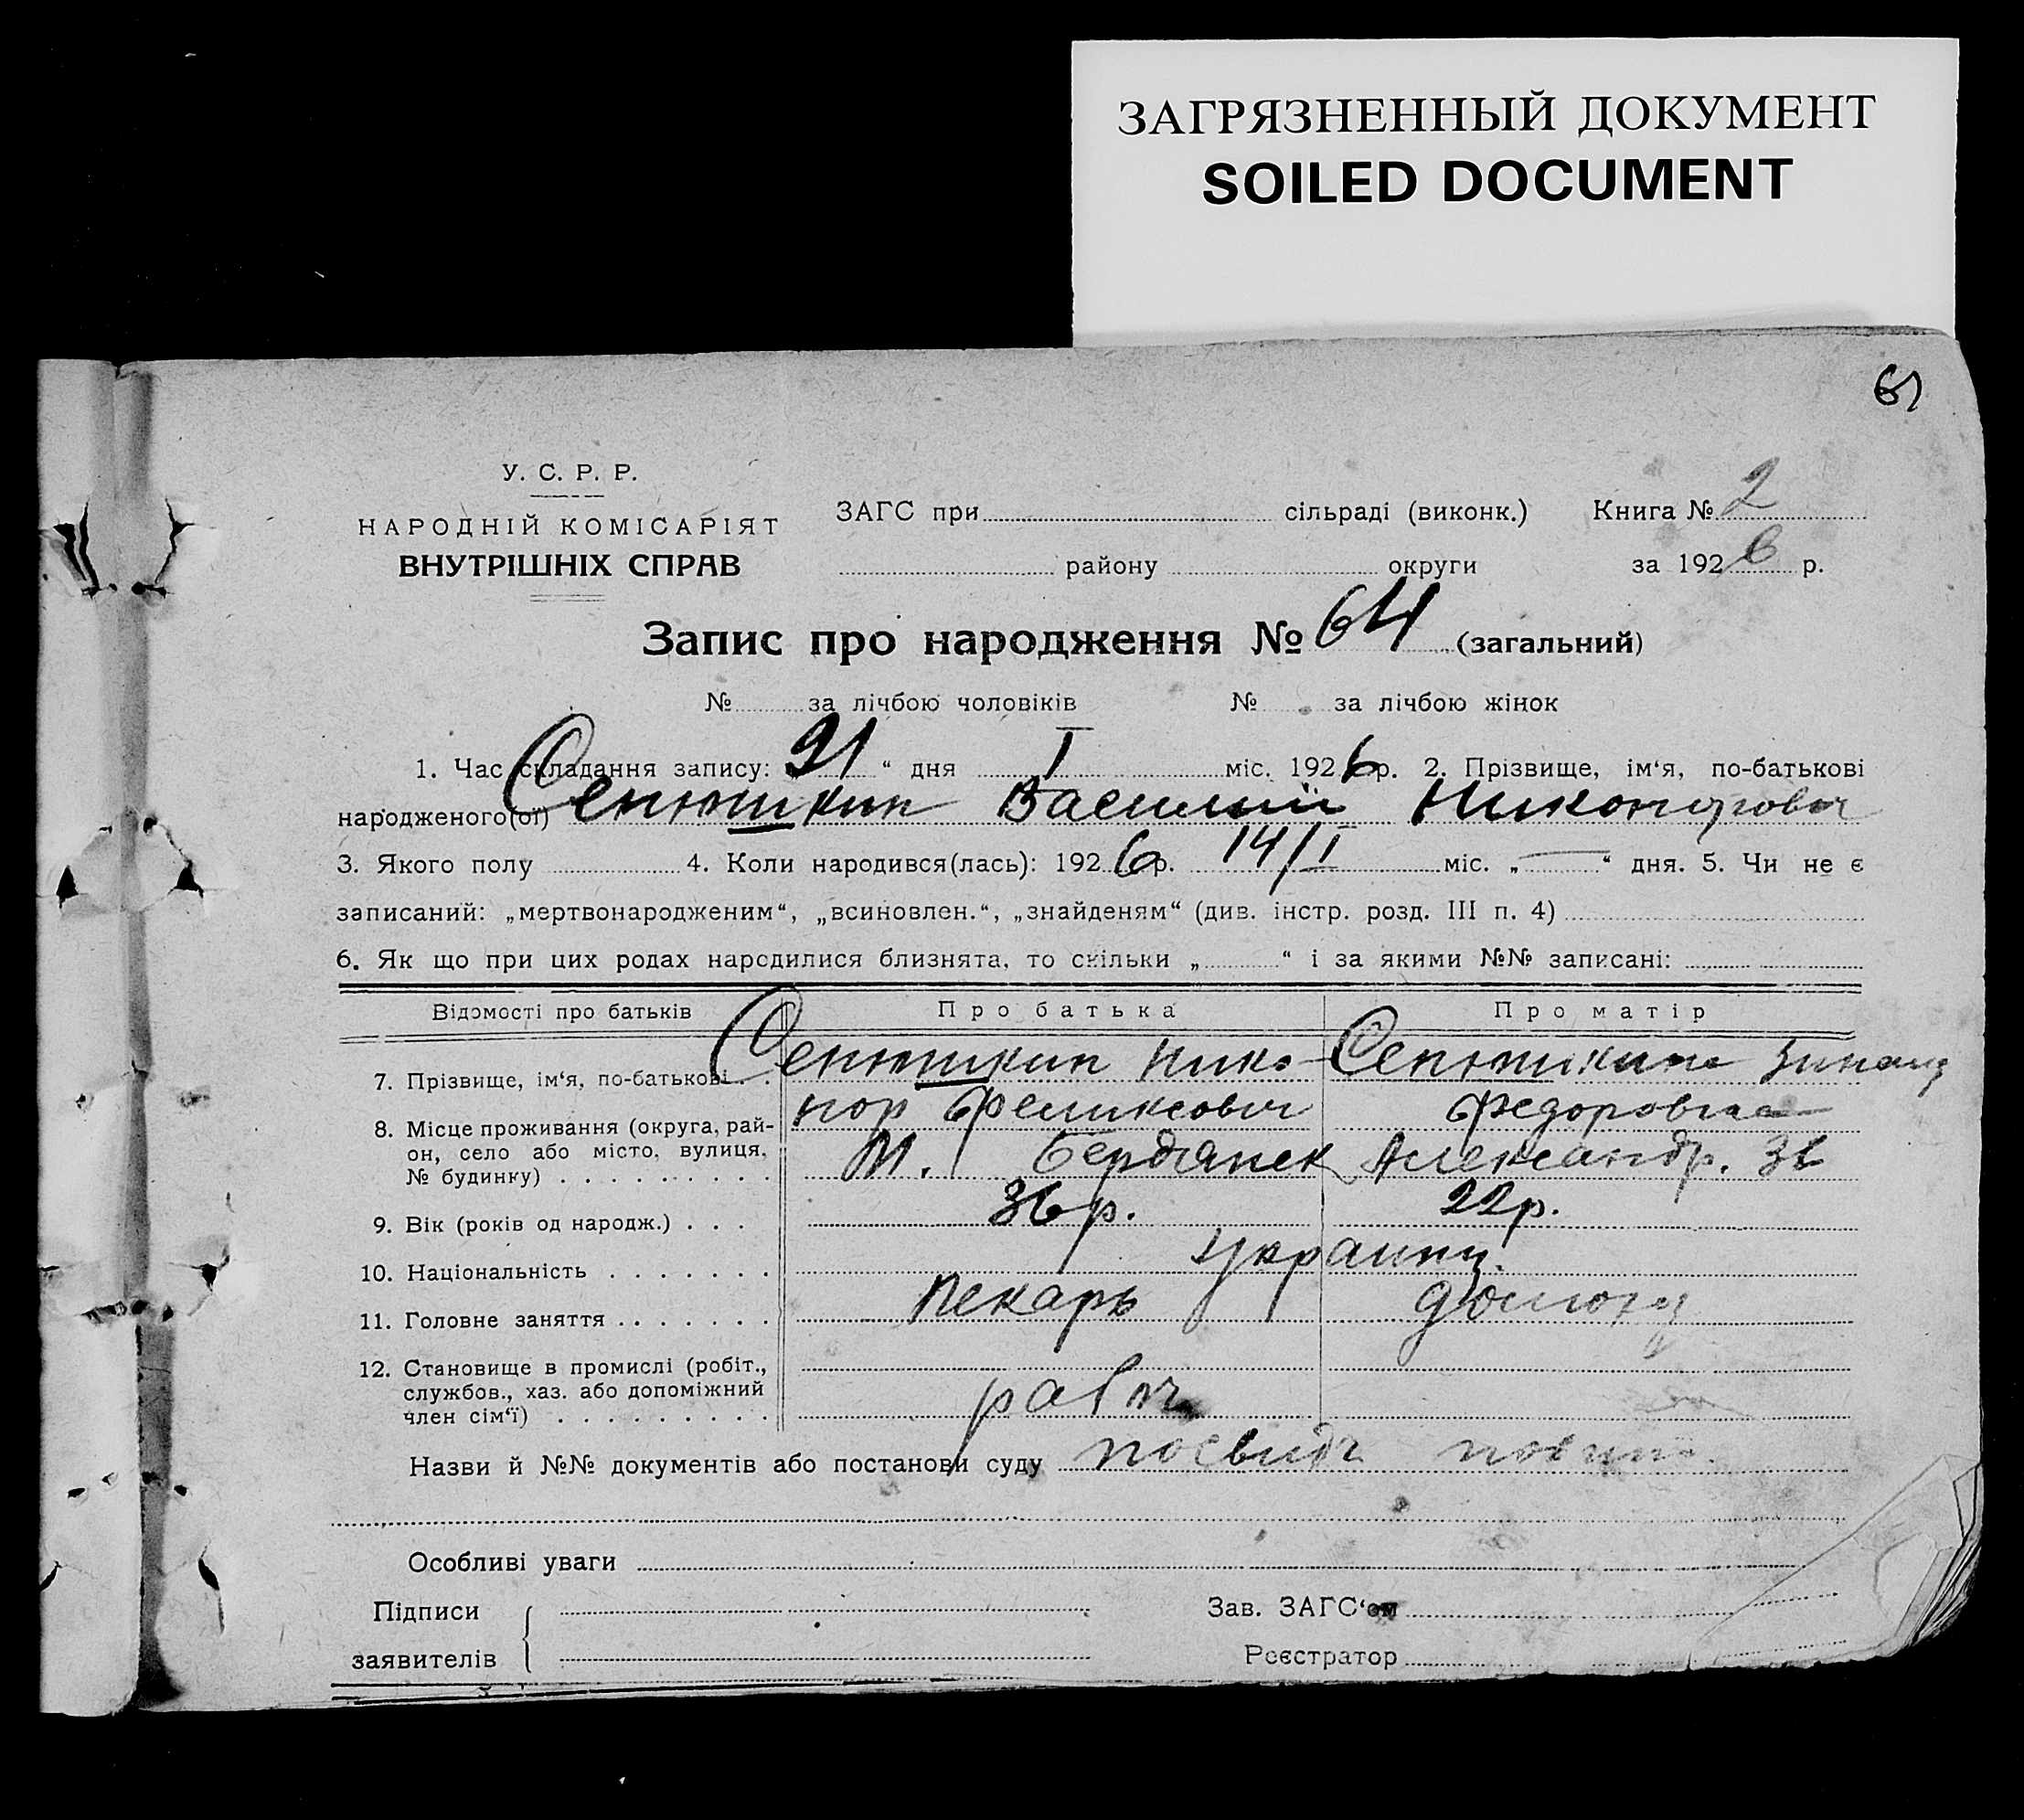 ЗАГРЯЗНЕННЫЙ ДОКУМЕНТ
SOILED DOCUMENT
У. С. Р. Р.
НАРОДНІЙ КОМІСАРІЯТ
ВНУТРІШНІХ СПРАВ
ЗАГС при сільраді (виконк.) Книга № 2
району округи за 1926 р.
Запис про народження № 64 (загальний)
№ за лічбою чоловіків № за лічбою жінок
1. Час складання запису: „21“ дня I міс. 1926 р. 2. Прізвище, ім‘я, по-батькові
народженого(ої) Сенюшкин Василий Никонорович
3. Якого полу 4. Коли народився(лась): 1926 р. 14/I міс. „—“ дня. 5. Чи не є
записаний: „мертвонародженим“, „всиновлен.“, „знайденям“ (див. інстр. розд. III п. 4)
6. Як що при цих родах народилися близнята, то скільки „ “ і за якими №№ записані:
Відомості про батьків Про батька Про матір
7. Прізвище, ім‘я, по-батькові Сенюшкин Нико- Сенюшкина Зинаид
нор Феликсович Федоровна
8. Місце проживання (округа, рай-
он, село або місто, вулиця,
№ будинку) М. Бердянск Александр. 36
9. Вік (років од народж.) 36 р. 22 р.
10. Національність Украинц.
11. Головне заняття Пекарь домохоз
12. Становище в промислі (робіт.,
службов., хаз. або допоміжний
член сім‘ї) рабоч
Назви й №№ документів або постанови суду посвидч
Особливі уваги
Підписи
заявителів
Зав. ЗАГС‘ом
Реєстратор